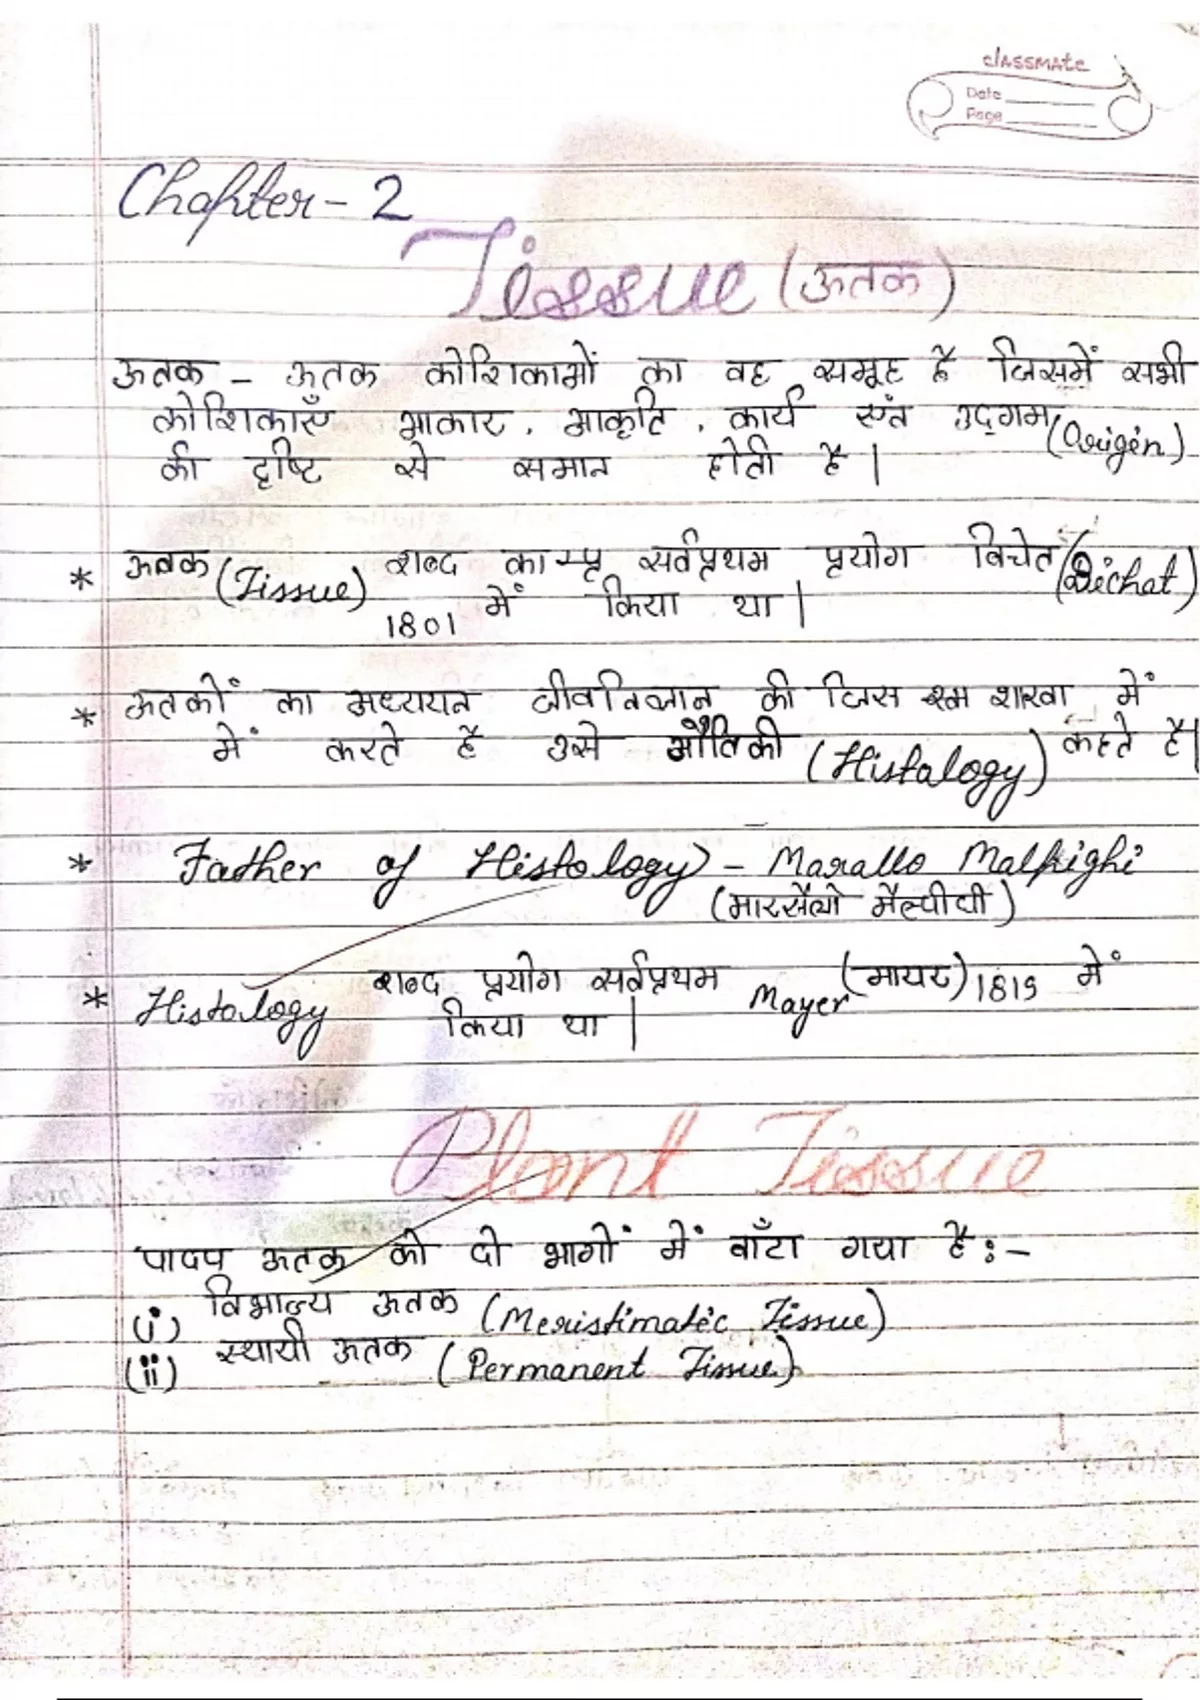 classmate
Date
Page
Chapter - 2
Tissue (ऊतक)
ऊतक - ऊतक कोशिकाओं का वह समूह है जिसमें सभी
कोशिकाएँ आकार, आकृति, कार्य एंव उद्गम (Origin)
की दृष्टि से समान होती है |
* ऊतक (Tissue) शब्द का सर्वप्रथम प्रयोग बिचेत (Bichat)
1801 में किया था |
* ऊतकों का अध्ययन जीवविज्ञान की जिस शाखा में
में करते है उसे औतिकी (Histalogy) कहते है|
* Father of Histology - Marallo Malpighi
(मारसैलो मैल्पीघी)
* Histology शब्द प्रयोग सर्वप्रथम Mayer (मायर) 1819 में
किया था |
Plant Tissue
पादप ऊतक को दो भागों में बाँटा गया है :-
(i) विभाज्य ऊतक (Meristimatic Tissue)
(ii) स्थायी ऊतक (Permanent Tissue)